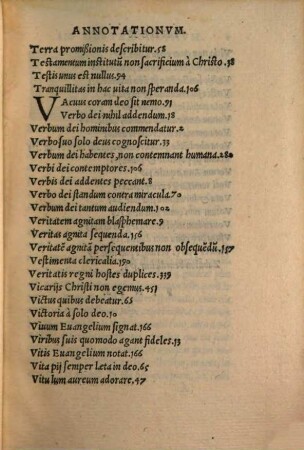 ANNOTATIONVM.
Terra promißionis describitur.58
Testamentum institutū non sacrificium à Christo.38
Testis unus est nullus.94
Tranquillitas in hac uita non speranda.106
VAcuus coram deo sit nemo.93
Verbo dei nihil addendum.18
Verbum dei hominibus commendatur.2
Verbo suo solo deus cognoscitur.33
Verbum dei habentes, non contemnant humana.280
Verbi dei contemptores.106
Verbis dei addentes peccant.8
Verbo dei standum contra miracula.70
Verbum dei tantum audiendum.102
Veritatem agnitam blasphemare.9
Veritas agnita sequenda.156
Veritatē agnitā persequentibus non obsequēdū.157
Vestimenta clericalia.190
Veritatis regni hostes duplices.319
Vicarijs Christi non egemus.457
Victus quibus debeatur.65
Victoria à solo deo.10
Viuum Euangelium signat.166
Viribus suis quomodo agant fideles.13
Vitis Euangelium notat.166
Vita pij semper læta in deo.65
Vitulum aureum adorare.47